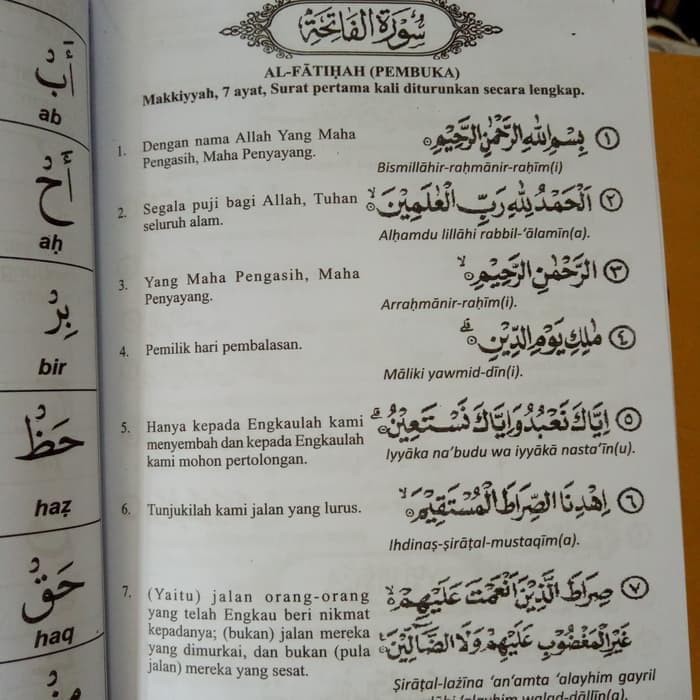 أَبْ
ab
أَحْ
aḥ
بِرْ
bir
حَظْ
haẓ
حَقْ
haq
سُورَةُ الْفَاتِحَةِ
AL-FĀTIḤAH (PEMBUKA)
Makkiyyah, 7 ayat, Surat pertama kali diturunkan secara lengkap.
1. Dengan nama Allah Yang Maha
Pengasih, Maha Penyayang.
بِسْمِ اللّٰهِ الرَّحْمٰنِ الرَّحِيْمِ ١
Bismillāhir-raḥmānir-raḥīm(i)
2. Segala puji bagi Allah, Tuhan
seluruh alam.
اَلْحَمْدُ لِلّٰهِ رَبِّ الْعٰلَمِيْنَۙ ٢
Alḥamdu lillāhi rabbil-‘ālamīn(a).
3. Yang Maha Pengasih, Maha
Penyayang.
الرَّحْمٰنِ الرَّحِيْمِۙ ٣
Arraḥmānir-raḥīm(i).
4. Pemilik hari pembalasan.
مٰلِكِ يَوْمِ الدِّيْنِۗ ٤
Māliki yawmid-dīn(i).
5. Hanya kepada Engkaulah kami
menyembah dan kepada Engkaulah
kami mohon pertolongan.
اِيَّاكَ نَعْبُدُ وَاِيَّاكَ نَسْتَعِيْنُۗ ٥
Iyyāka na’budu wa iyyākā nasta’īn(u).
6. Tunjukilah kami jalan yang lurus.
اِهْدِنَا الصِّرَاطَ الْمُسْتَقِيْمَۙ ٦
Ihdinaṣ-ṣirāṭal-mustaqīm(a).
7. (Yaitu) jalan orang-orang
yang telah Engkau beri nikmat
kepadanya; (bukan) jalan mereka
yang dimurkai, dan bukan (pula
jalan) mereka yang sesat.
صِرَاطَ الَّذِيْنَ اَنْعَمْتَ عَلَيْهِمْ ەۙ ٧
غَيْرِ الْمَغْضُوْبِ عَلَيْهِمْ وَلَا الضَّاۤلِّيْنَ
Ṣirāṭal-lażīna ‘an‘amta ‘alayhim gayril
‘alayhim walad-dāllīn(a)